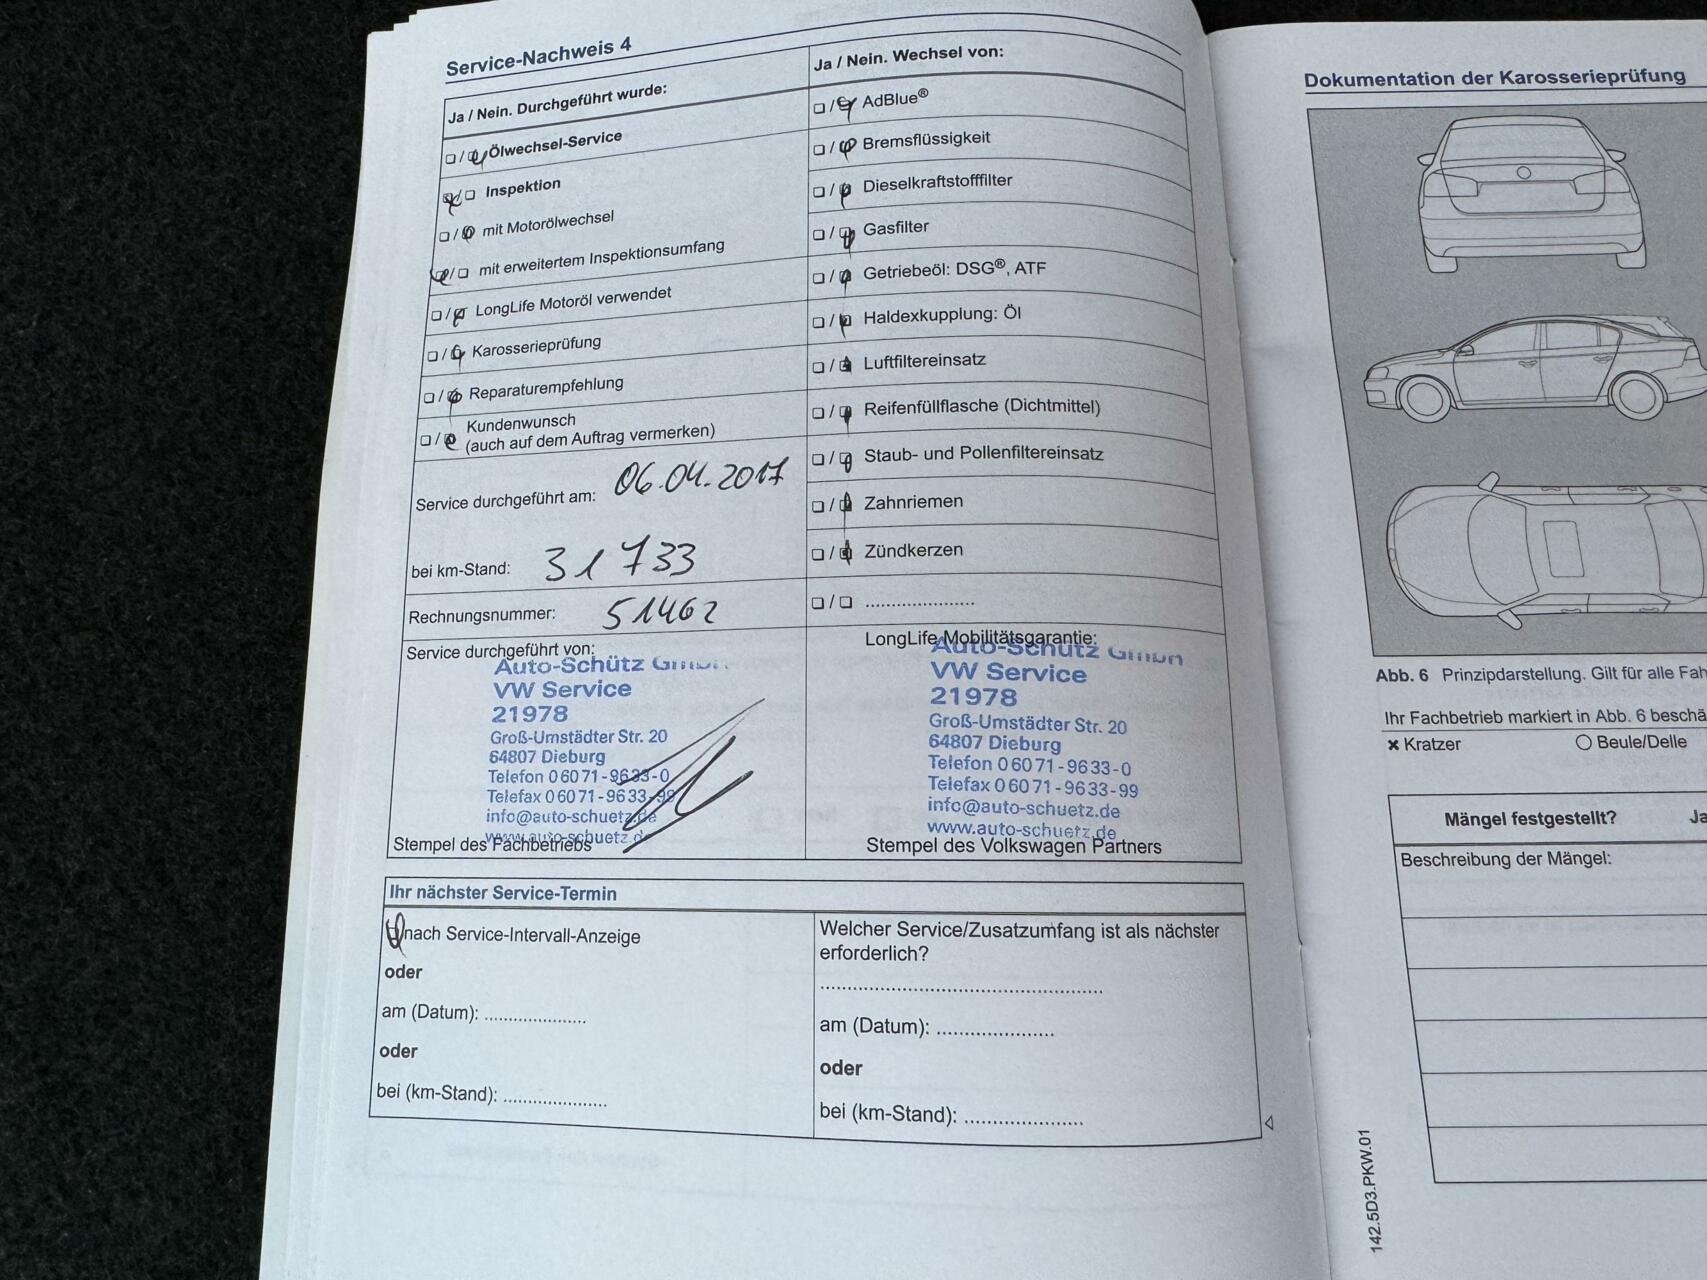 Service-Nachweis 4
Ja / Nein. Durchgeführt wurde:
Ölwechsel-Service
Inspektion
mit Motorölwechsel
mit erweitertem Inspektionsumfang
LongLife Motoröl verwendet
Karosserieprüfung
Reparaturempfehlung
Kundenwunsch
(auch auf dem Auftrag vermerken)
Service durchgeführt am: 06.04.2017
bei km-Stand: 31 733
Rechnungsnummer: 51462
Service durchgeführt von:
Auto-Schütz GmbH
VW Service
21978
Groß-Umstädter Str. 20
64807 Dieburg
Telefon 06071-9633-0
Telefax 06071-9633-99
info@auto-schuetz.de
www.auto-schuetz.de
Stempel des Fachbetriebs
Ja / Nein. Wechsel von:
AdBlue®
Bremsflüssigkeit
Dieselkraftstofffilter
Gasfilter
Getriebeöl: DSG®, ATF
Haldexkupplung: Öl
Luftfiltereinsatz
Reifenfüllflasche (Dichtmittel)
Staub- und Pollenfiltereinsatz
Zahnriemen
Zündkerzen
....................
LongLife Mobilitätsgarantie:
Auto-Schütz GmbH
VW Service
21978
Groß-Umstädter Str. 20
64807 Dieburg
Telefon 06071-9633-0
Telefax 06071-9633-99
info@auto-schuetz.de
www.auto-schuetz.de
Stempel des Volkswagen Partners
Ihr nächster Service-Termin
nach Service-Intervall-Anzeige
oder
am (Datum): ....................
oder
bei (km-Stand): ....................
Welcher Service/Zusatzumfang ist als nächster
erforderlich?
....................
am (Datum): ....................
oder
bei (km-Stand): ....................
Dokumentation der Karosserieprüfung
Abb. 6 Prinzipdarstellung. Gilt für alle Fah
Ihr Fachbetrieb markiert in Abb. 6 beschä
Kratzer
Beule/Delle
Mängel festgestellt? Ja
Beschreibung der Mängel:
142.5D3.PKW.01